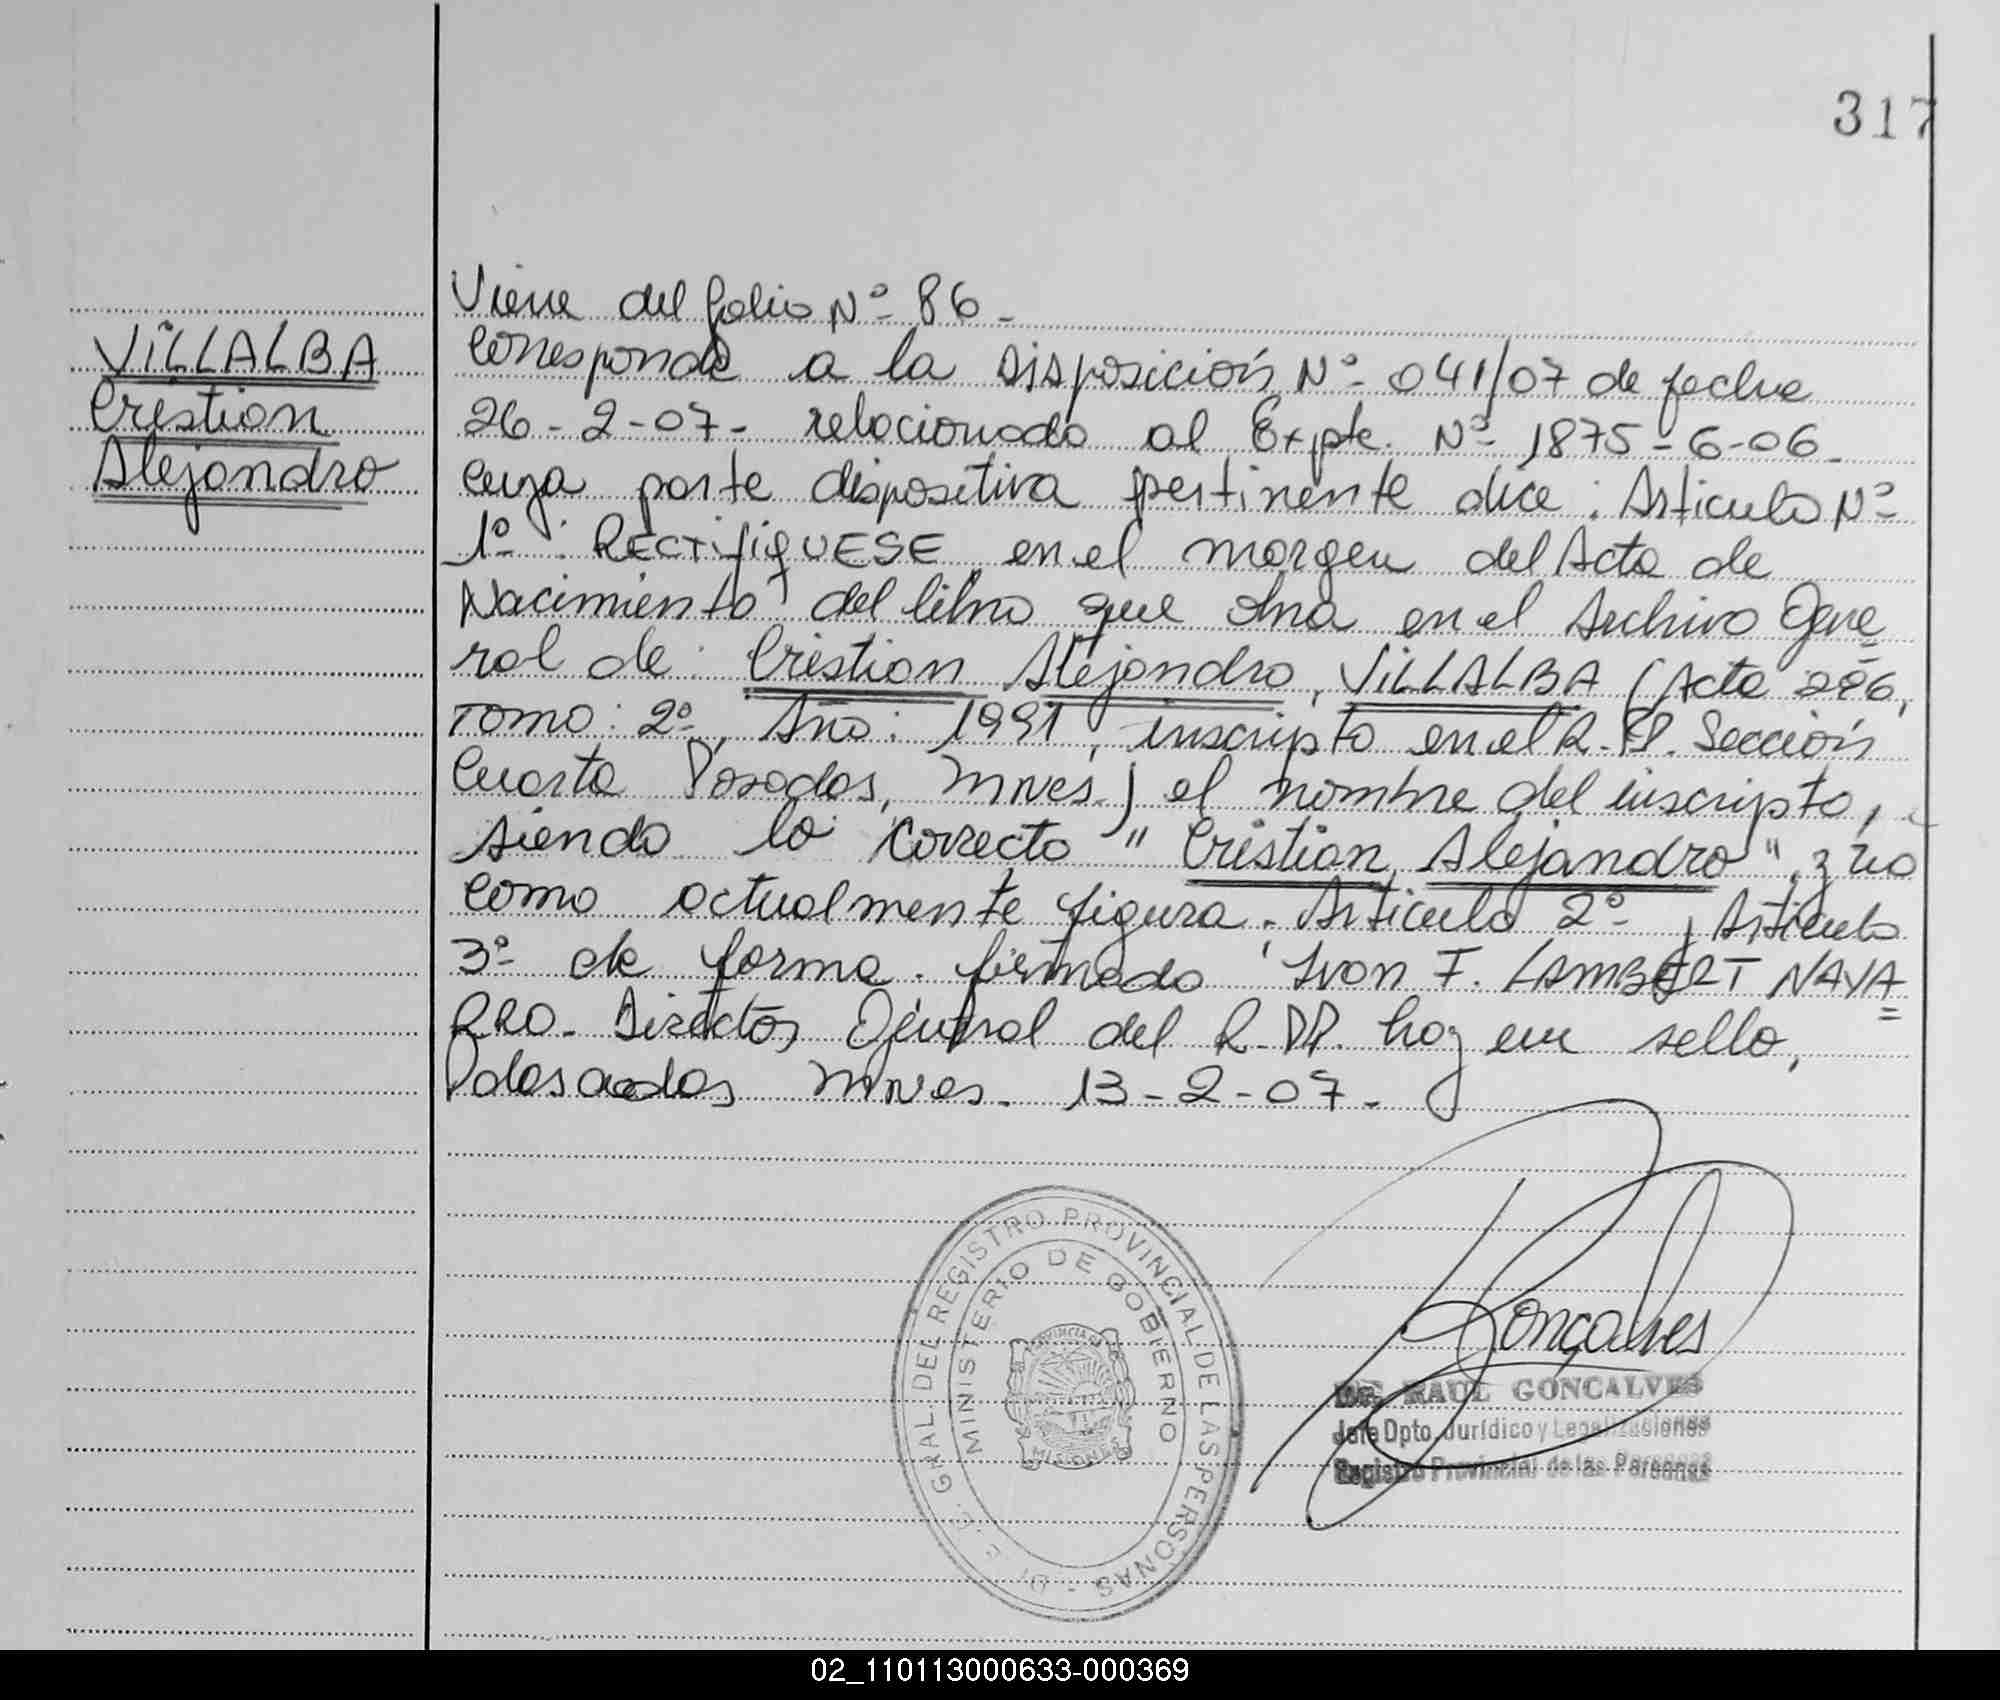 317
VILLALBA
Cristian
Alejandro
Viene del folio Nº 86.
Corresponde a la Disposición Nº 041/07 de fecha
26-2-07- relacionado al Expte. Nº 1875-6-06.
cuya parte dispositiva pertinente dice: Articulo Nº
1º: RECTIFIQUESE en el margen del Acta de
Nacimiento del libro que obra en el Archivo Gene
ral de: Cristian Alejandro, VILLALBA (Acta 286,
Tomo: 2º, Año: 1991, inscripto en el R.PP. Sección
Cuarta Posadas, Mnes.) el nombre del inscripto,
siendo lo correcto "Cristian Alejandro", y no
como actualmente figura. Articulo 2º y Articulo
3º de forma. firmado Ivon F. LAMBERT NAVA
RRO. Director General del R.PP. hay un sello,
Posadas Mnes. 13-2-07.
Goncalves
RAUL GONCALVES
Jefe Dpto. Jurídico y Legalizaciones
Registro Provincial de las Personas
GRAL. DEL REGISTRO PROVINCIAL DE LAS PERSONAS
MINISTERIO DE GOBIERNO
PROVINCIA DE
MISIONES
02_110113000633-000369